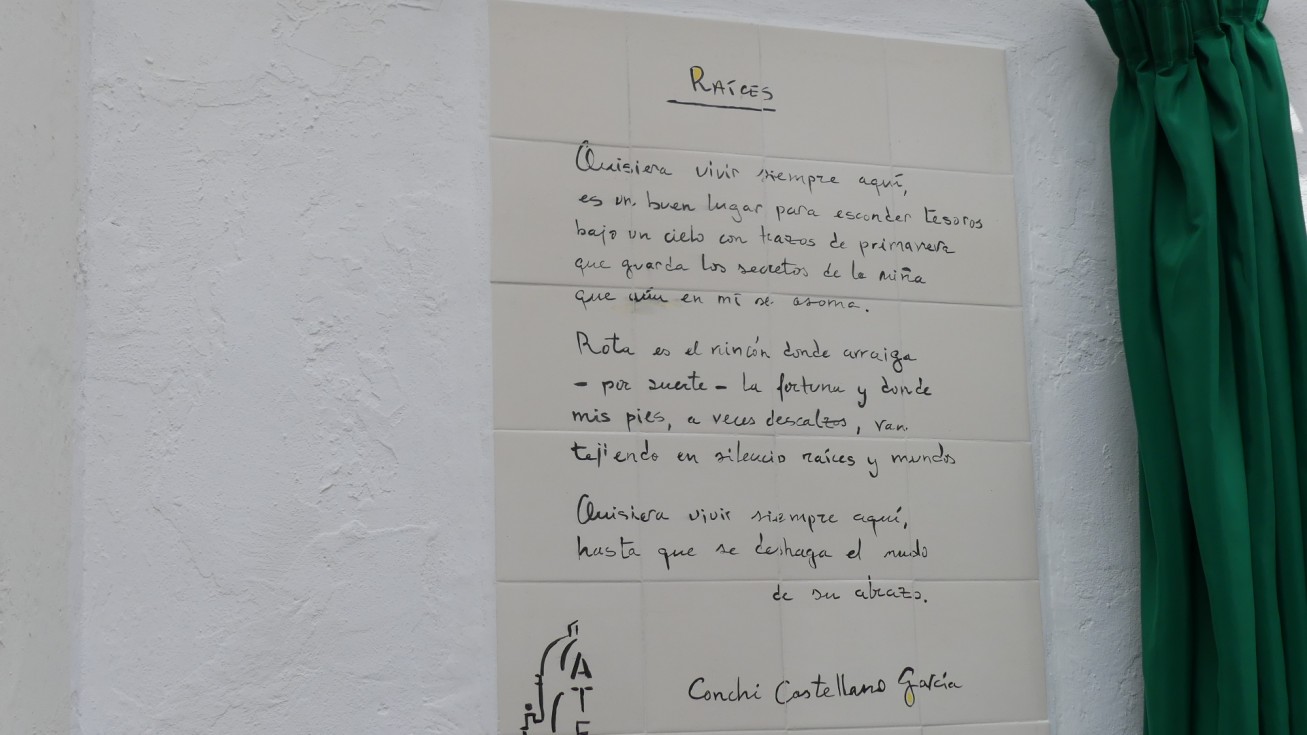 RAÍCES
Quisiera vivir siempre aquí,
es un buen lugar para esconder tesoros
bajo un cielo con trazos de primavera
que guarda los secretos de la niña
que aún en mí se asoma.
Rota es el rincón donde arraiga
- por suerte - la fortuna y donde
mis pies, a veces descalzos, van
tejiendo en silencio raíces y mundos
Quisiera vivir siempre aquí,
hasta que se deshaga el nudo
de su abrazo.
Conchi Castellano García
ATE